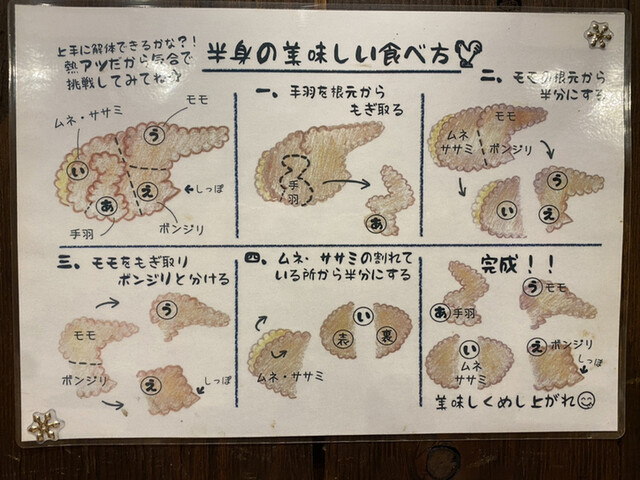 半身の美味しい食べ方
上手に解体できるかな?!
熱アツだから気合で
挑戦してみてね
モモ
ムネ・ササミ
う
い
あ
え
しっぽ
手羽
ボンジリ
一、手羽を根元から
もぎ取る
手
羽
あ
二、モモの根元から
半分にする
モモ
ムネ
ササミ
ボンジリ
い
う
え
三、モモをもぎ取り
ボンジリと分ける
モモ
ボンジリ
う
え
しっぽ
四、ムネ・ササミの割れて
いる所から半分にする
ムネ・ササミ
い
表
裏
完成!!
あ手羽
うモモ
い
ムネ
ササミ
えボンジリ
しっぽ
美味しくめし上がれ